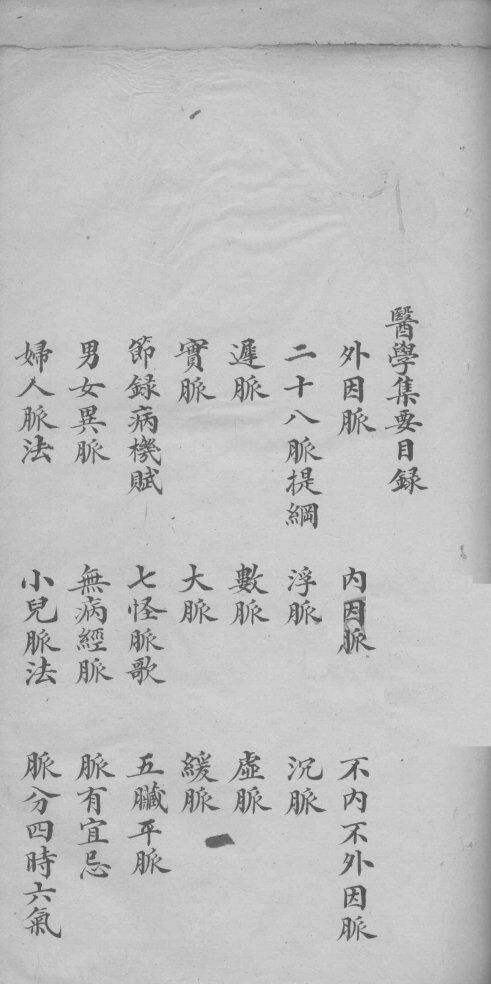 醫學集要目録
外因脈　內因脈　不內不外因脈
二十八脈提綱　浮脈　沉脈
遲脈　數脈　虛脈
實脈　大脈　緩脈
節録病機賦　七怪脈歌　五臟平脈
男女異脈　無病經脈　脈有宜忌
婦人脈法　小兒脈法　脈分四時六氣